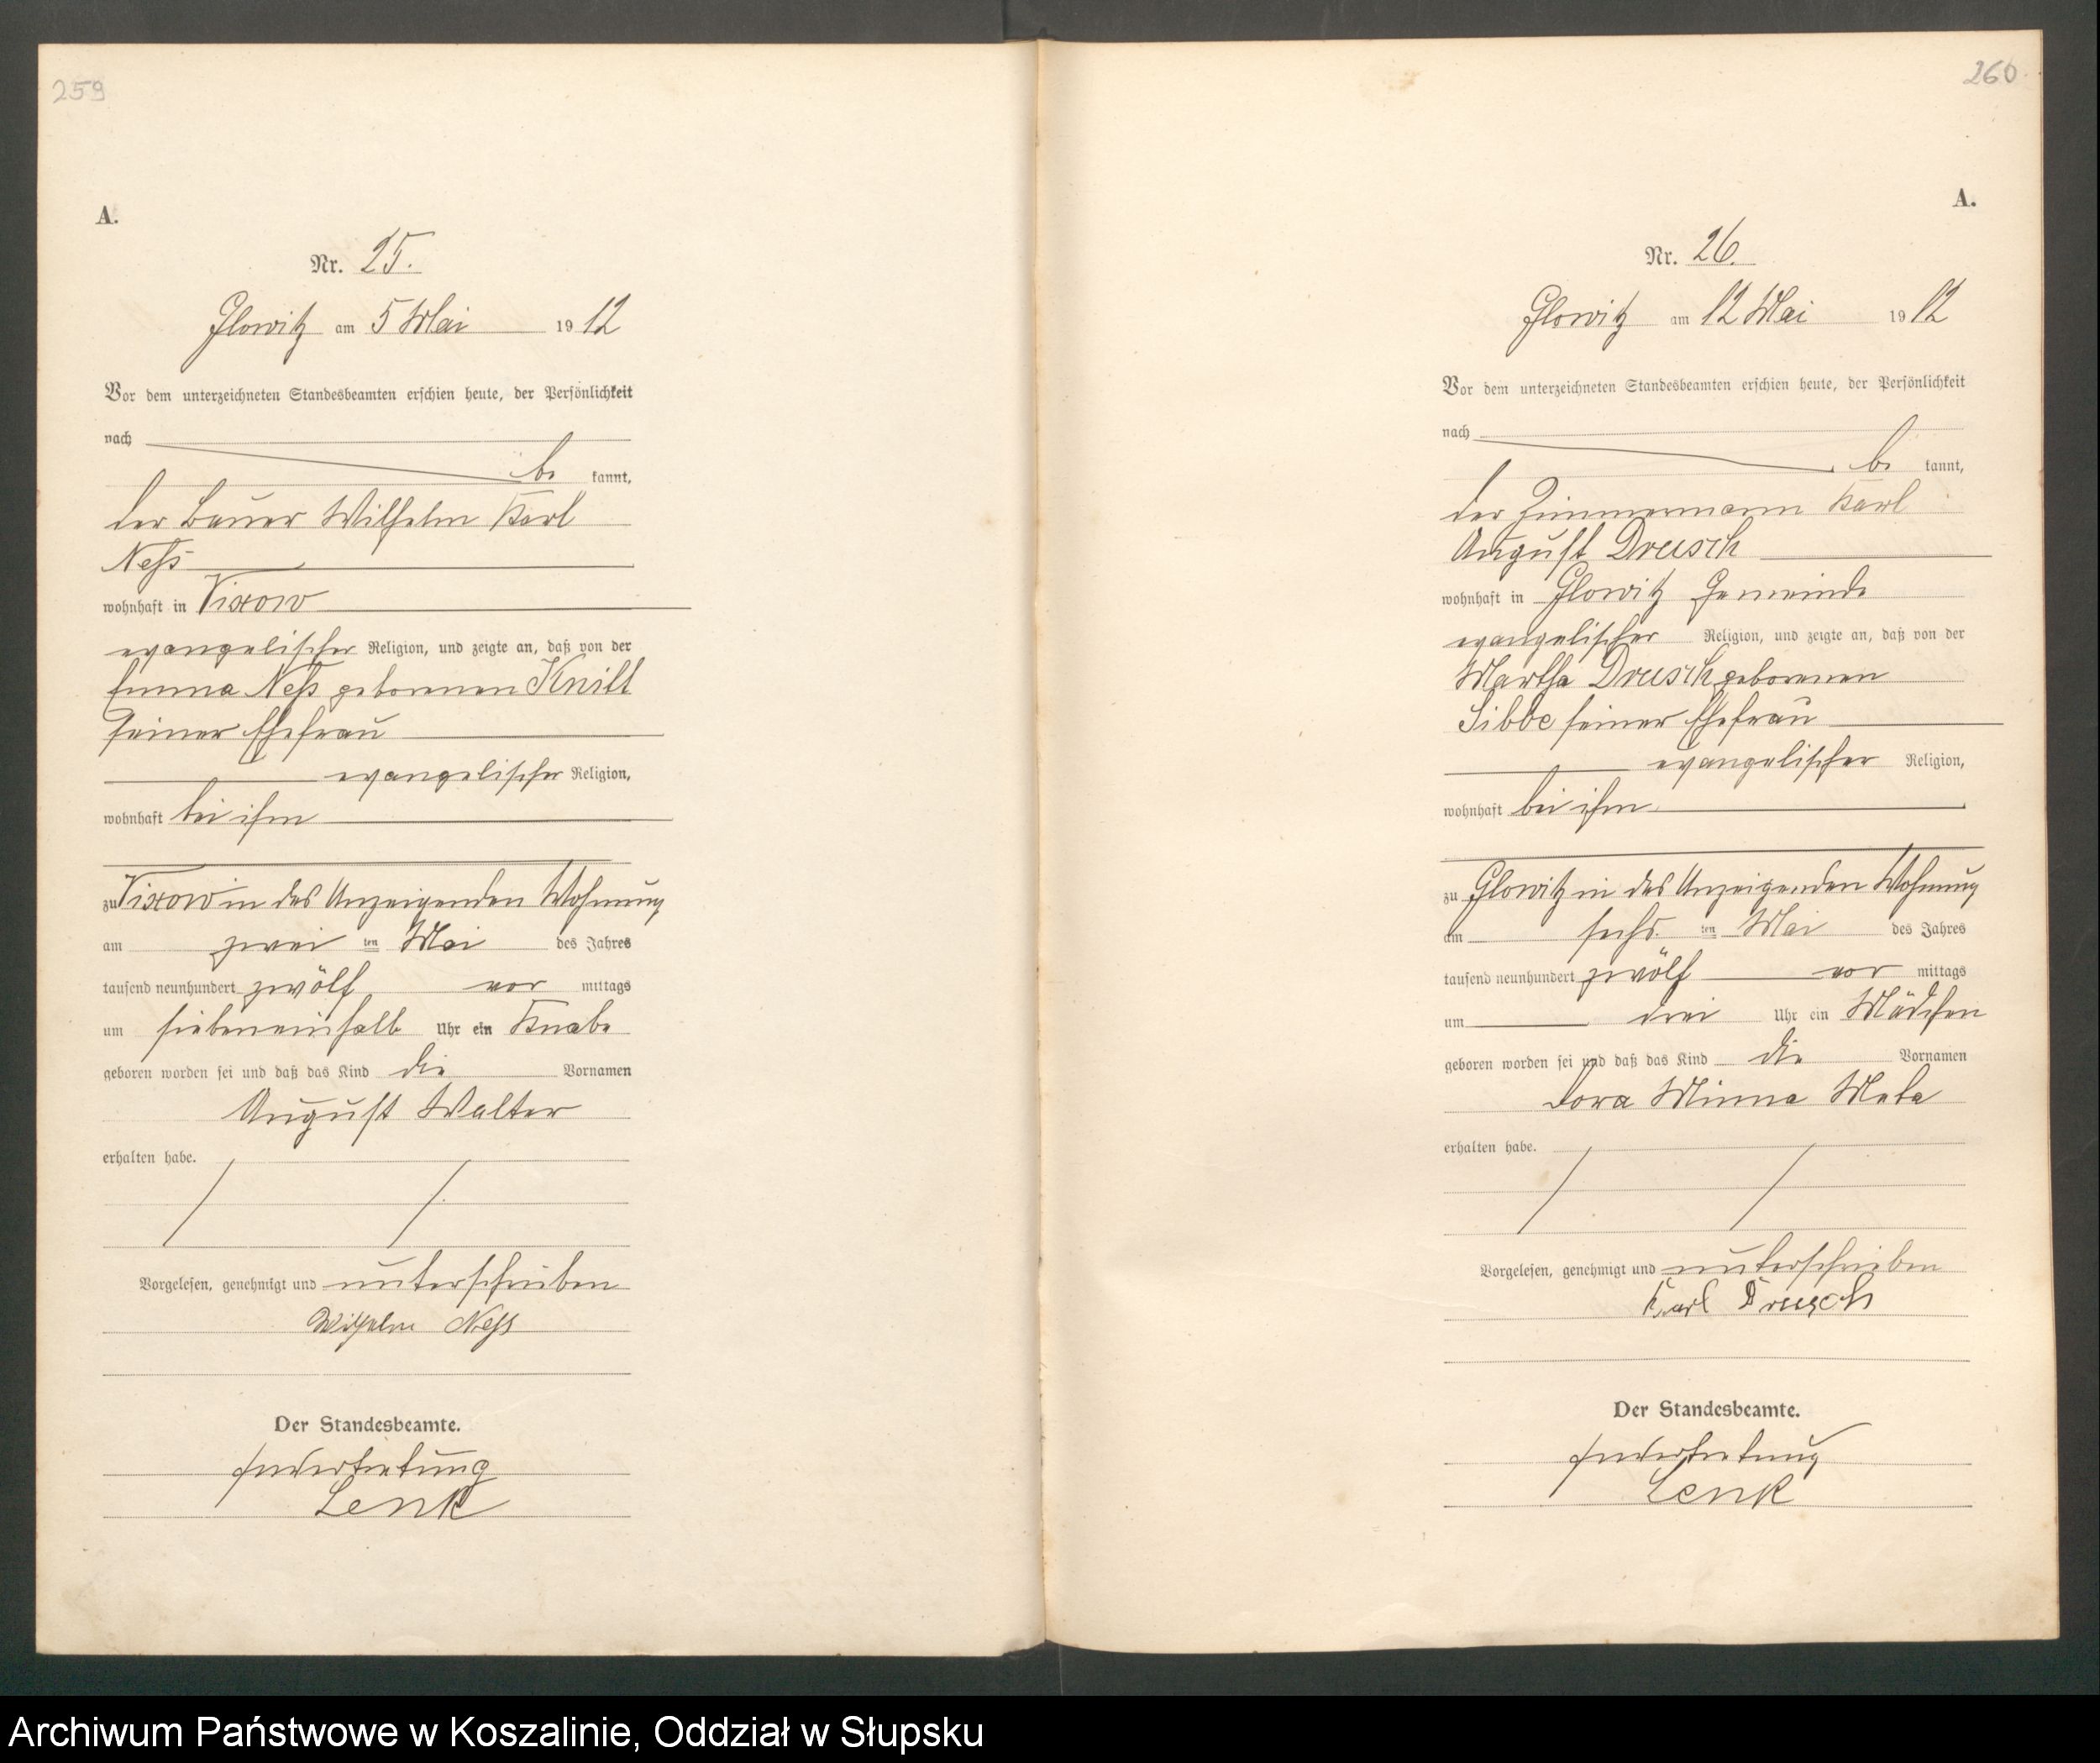 259
A.
Nr. 25.
Glowitz am 5 Mai 1912
Vor dem unterzeichneten Standesbeamten erschien heute, der Persönlichkeit
nach
be kannt,
der Bauer Wilhelm Karl
Neß
wohnhaft in Vixow
evangelischer Religion, und zeigte an, daß von der
Emma Neß geborenen
seiner Ehefrau
evangelischer Religion,
wohnhaft bei ihm
zu Vixow in des Anzeigenden Wohnung
am zwei ten Mai des Jahres
tausend neunhundert zwölf vor mittags
um siebeneinhalb Uhr ein Knabe
geboren worden sei und daß das Kind die Vornamen
August Walter
erhalten habe.
Vorgelesen, genehmigt und unterschrieben
Wilhelm Neß
Der Standesbeamte.
In Vertretung
Lenk
260
A.
Nr. 26.
Glowitz am 12 Mai 1912
Vor dem unterzeichneten Standesbeamten erschien heute, der Persönlichkeit
nach
be kannt,
der Zimmermann Karl
August Drusch
wohnhaft in Glowitz Gemeinde
evangelischer Religion, und zeigte an, daß von der
Martha Drusch geborenen
Sibbe seiner Ehefrau
evangelischer Religion,
wohnhaft bei ihm
zu Glowitz in des Anzeigenden Wohnung
am sechs ten Mai des Jahres
tausend neunhundert zwölf vor mittags
um drei Uhr ein Mädchen
geboren worden sei und daß das Kind die Vornamen
Dora Minna Meta
erhalten habe.
Vorgelesen, genehmigt und unterschrieben
Karl Drusch
Der Standesbeamte.
In Vertretung
Lenk
Archiwum Państwowe w Koszalinie, Oddział w Słupsku